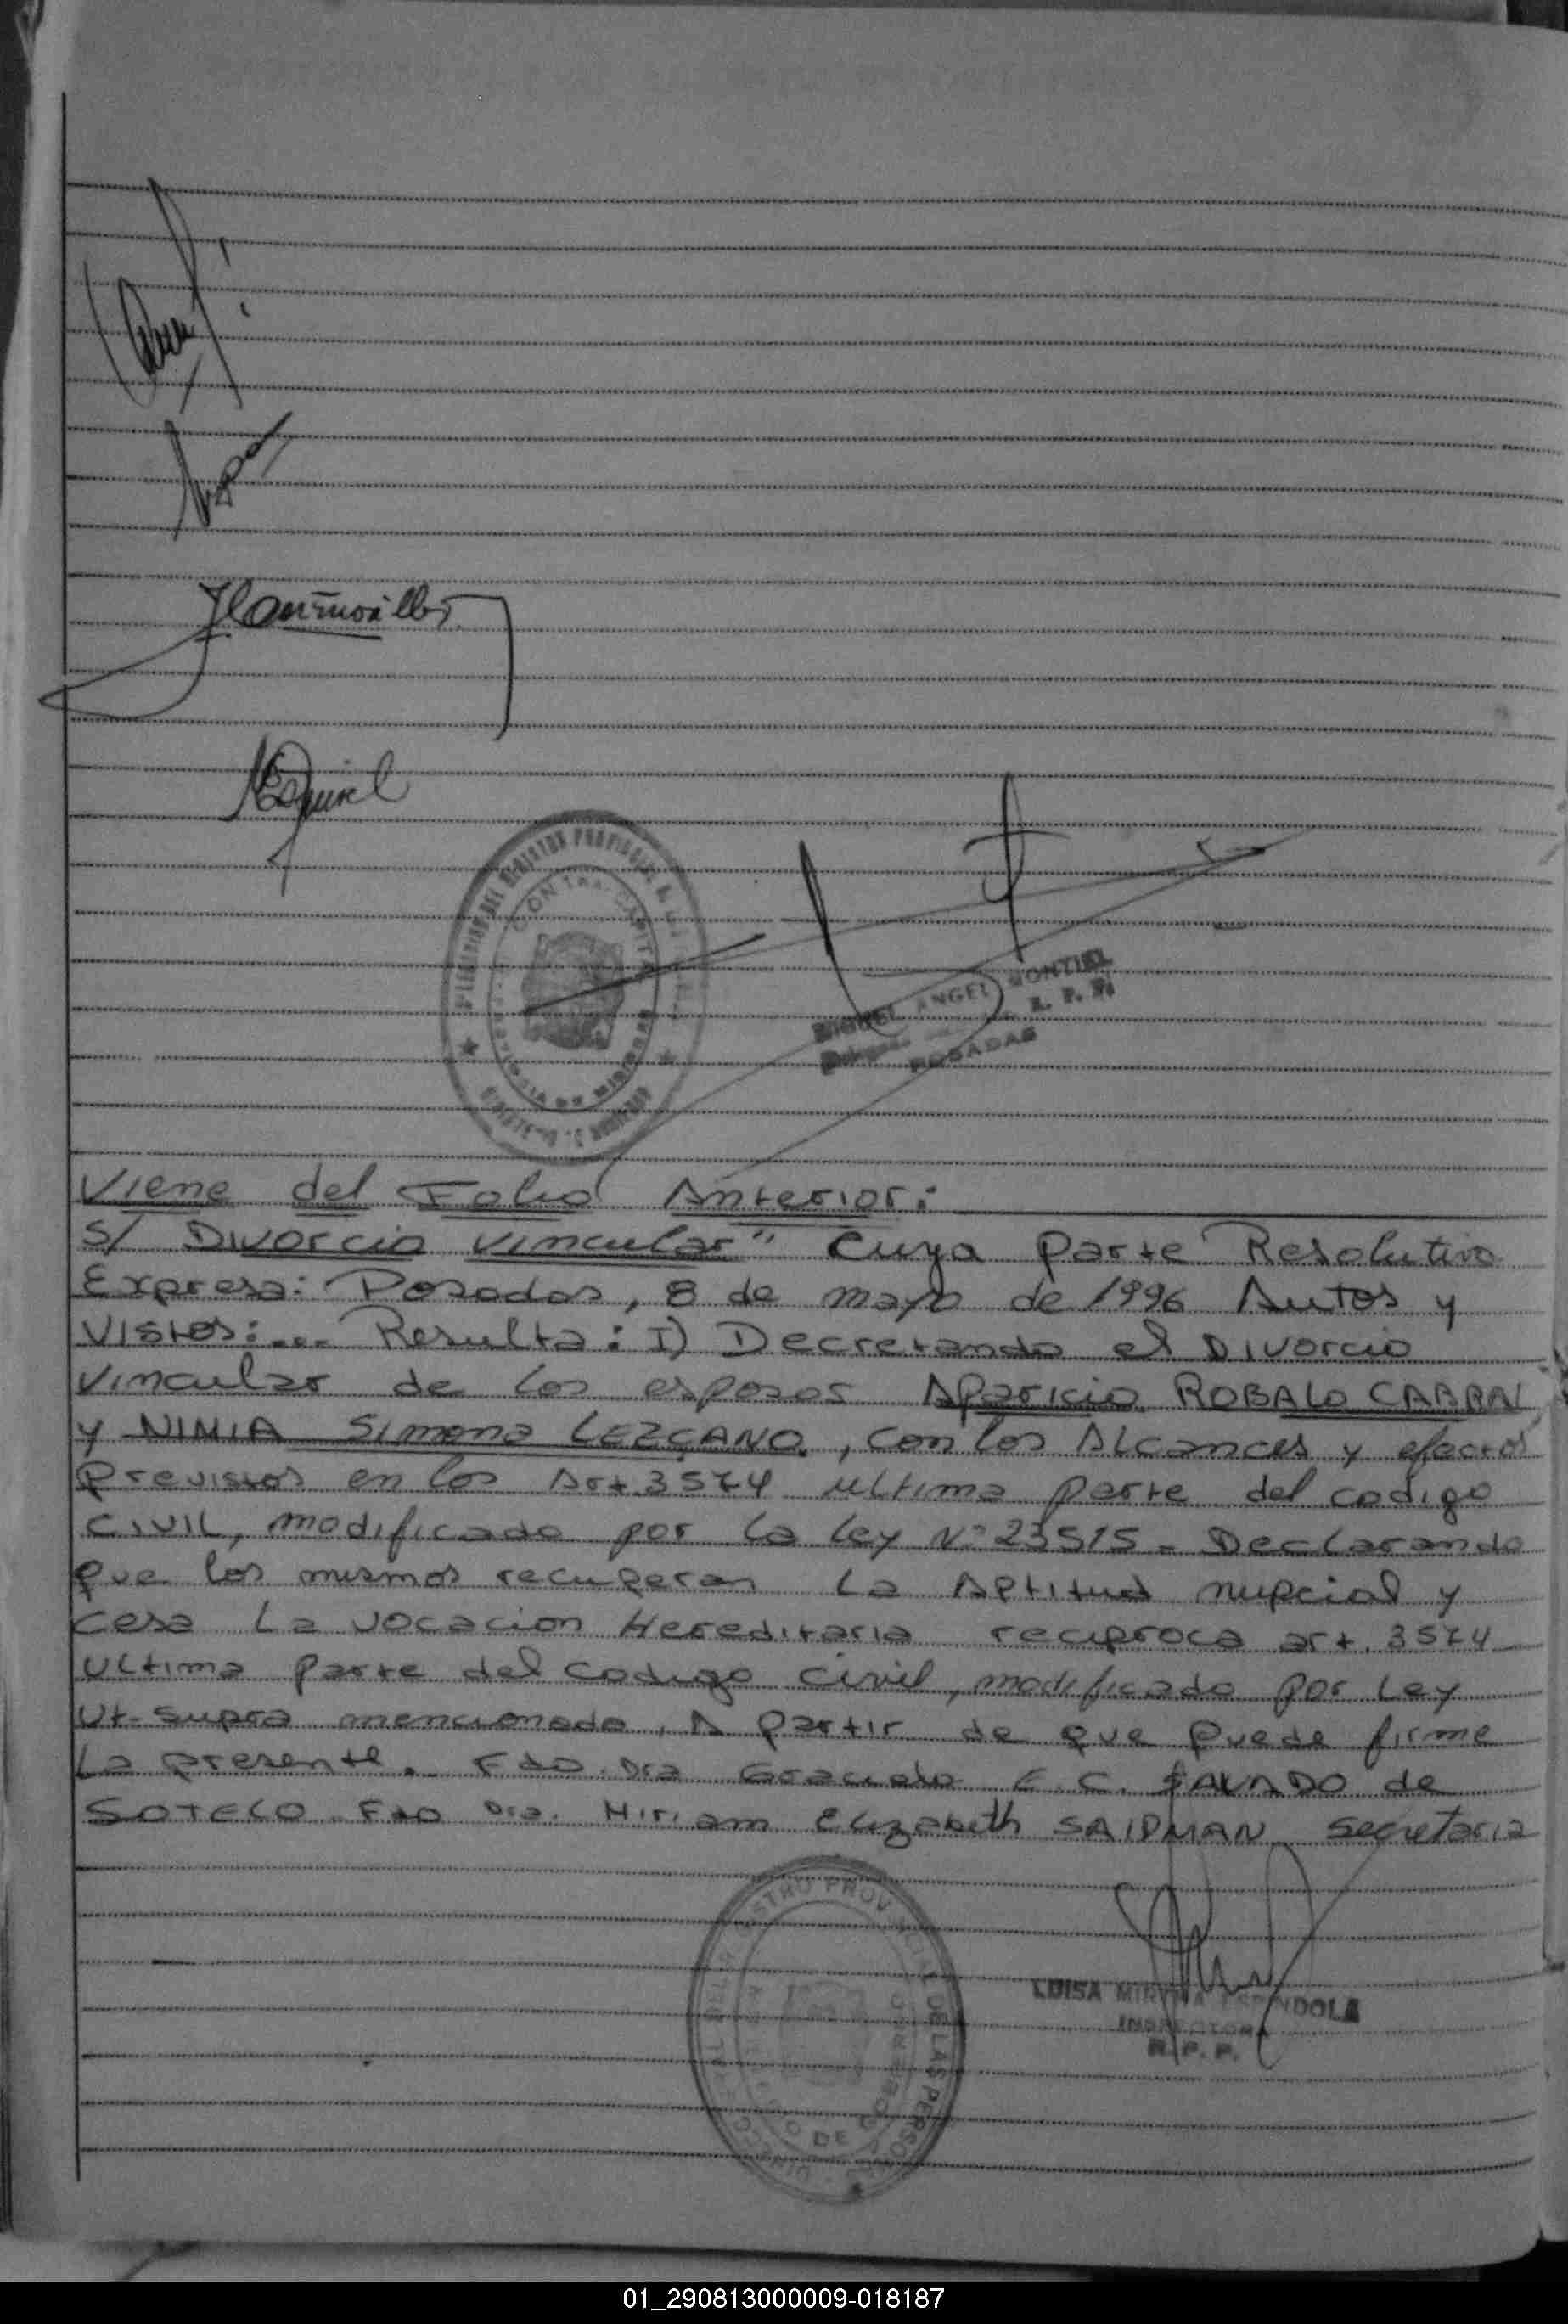 Viene del Folio Anterior:
S/ Divorcio vincular" cuya parte Resolutiva
Expresa: Posadas, 8 de mayo de 1996 Autos y
Vistos:... Resulta: I) Decretando el Divorcio
Vincular de los esposos Aparicio ROBALO CABRAL
y NIMIA Simona LEZCANO, con los Alcances y efectos
previstos en los Art. 3574 ultima parte del codigo
CIVIL, modificado por la ley N° 23515. Declarando
que los mismos recuperan la Aptitud nupcial y
cesa La vocacion Hereditaria reciproca art. 3574
ultima parte del codigo civil, modificado por Ley
Ut-supra mencionada, A partir de que quede firme
La presente. Fdo. Dra Graciela E. C. de
SOTELO. Fdo Dra. Miriam Elizabeth SAIDMAN Secretaria
MIGUEL ANGEL MONTIEL
R. P. P.
POSADAS
LUISA MIRTHA ESPINDOLA
INSPECTORA
R. P. P.
01_290813000009-018187